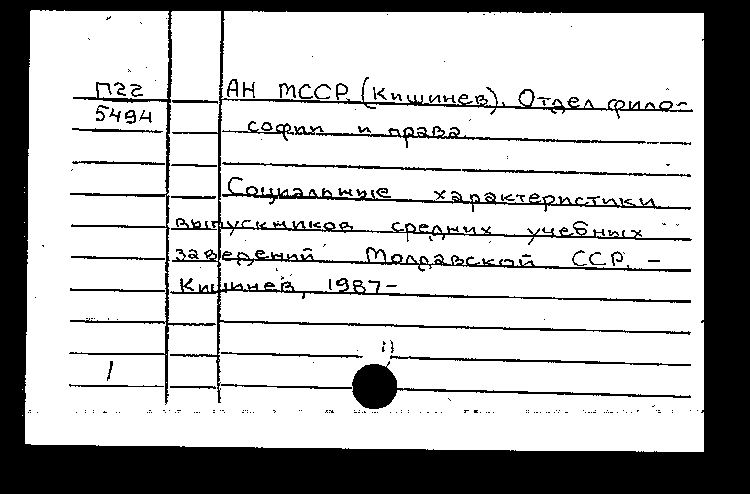 П22 АН МССР. (Кишинев). Отдел фило-
5494 софии и права.
Социальные характеристики
выпускников средних учебных
заведений Молдавской ССР. –
Кишинев, 1987–
1